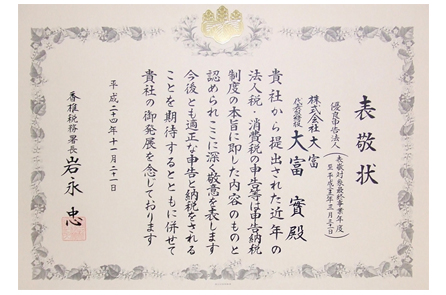 表敬状
優良申告法人
表敬対象最終事業年度
至 平成 年三月三十一日
株式会社 大富
代表取締役 大富 實 殿
貴社から提出された近年の
法人税・消費税の申告等は申告納税
制度の本旨に即した内容のものと
認められここに深く敬意を表します
今後とも適正な申告と納税をされる
ことを期待するとともに併せて
貴社の御発展を念じております
平成二十四年十一月二十一日
香椎税務署長 岩永 忠